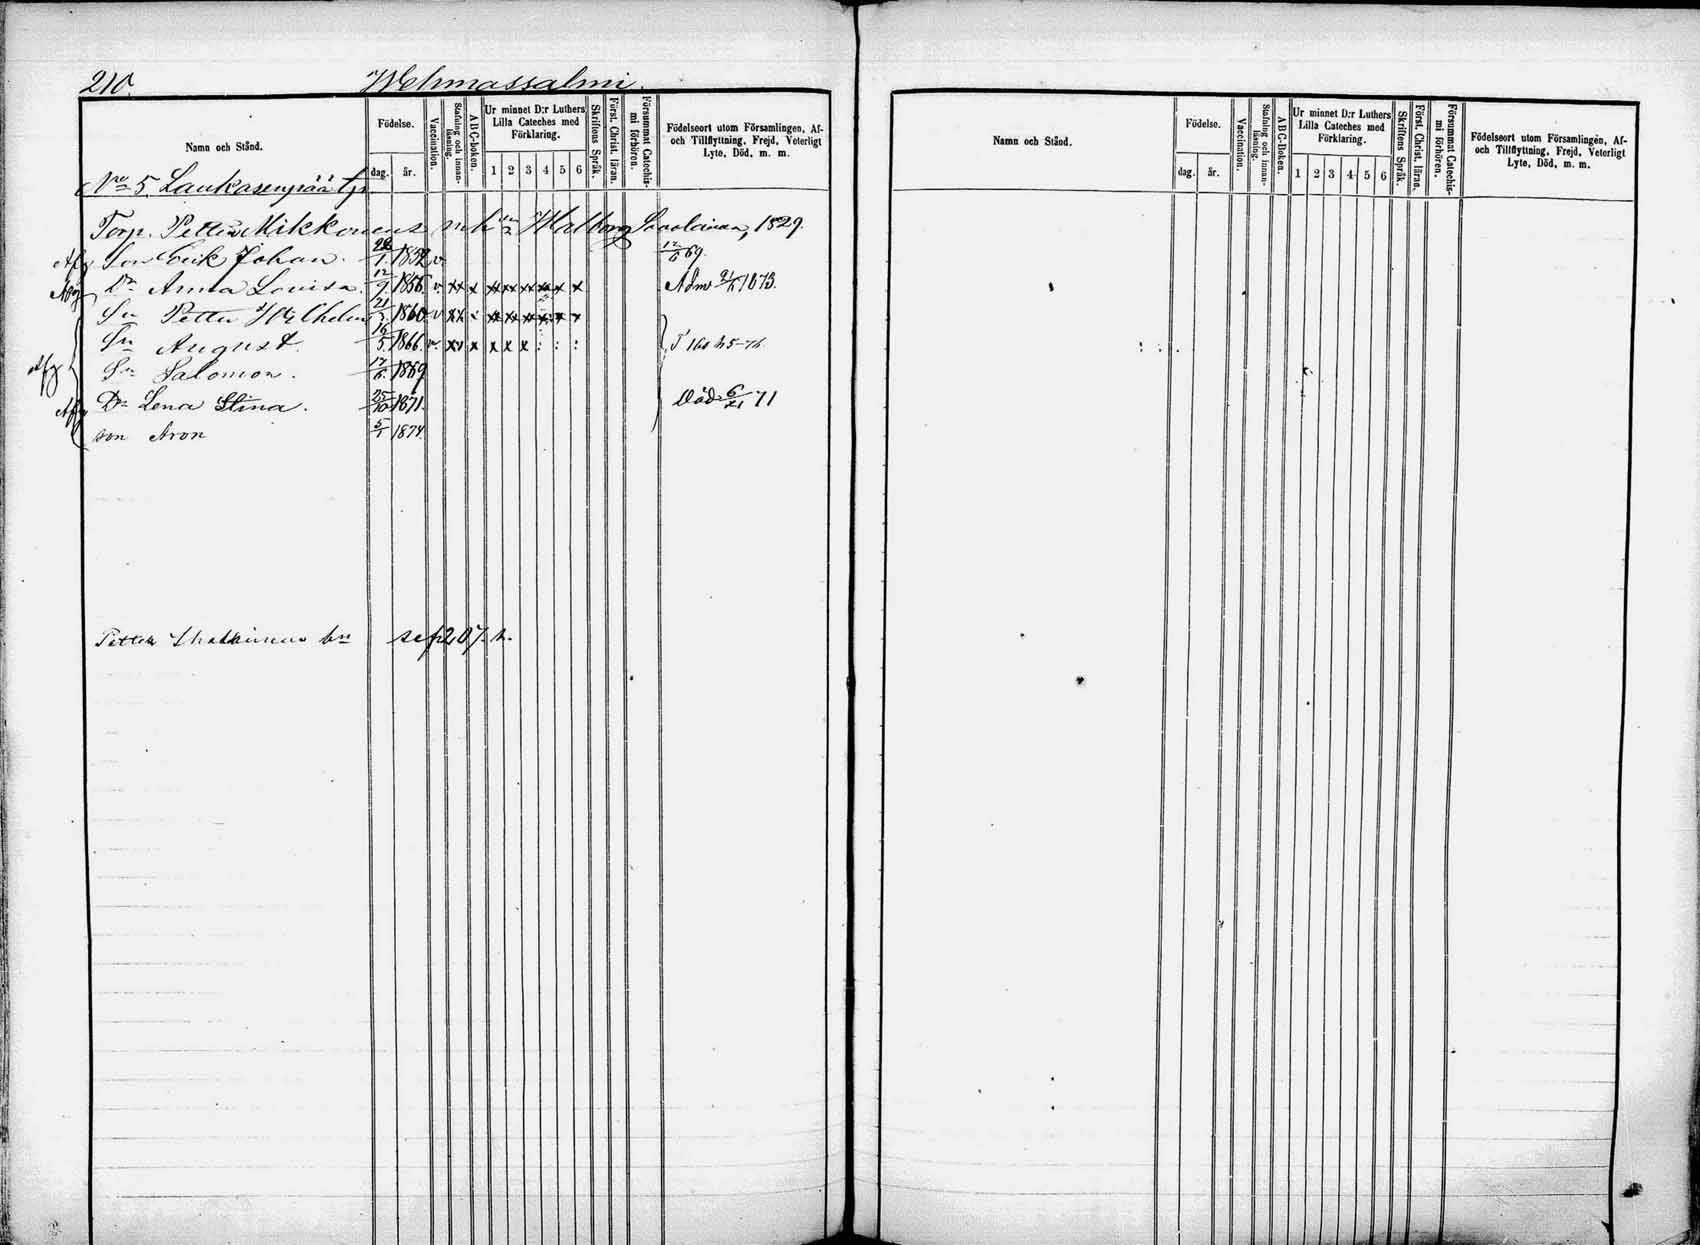 210.
Wehmassalmi.
Namn och Stånd.
Födelse.
dag.
år.
Vaccination.
Stafning och innanläsning.
ABC-boken.
Ur minnet D:r Luthers
Lilla Cateches med
Förklaring.
1 2 3 4 5 6
Skriftens Språk.
Först. Christ. läran.
Försummat Catechismi förhören.
Födelseort utom Församlingen, Af-
och Tillflyttning, Frejd, Veterligt
Lyte, Död, m. m.
No 5. Laukasenpää tp
Torp. Petter Mikkonens Walborg 1829.
Afg Son Erik Johan. 1852 v. 12/6 69.
Afg Dr Anna Lovisa. 12/9 1856. v. xx x xx xx xx xx x x Adm 1873.
Sn Petter Wilhelm 21/3 1860. v
Sn August. 16/5 1866. v. x x x
Afg Sn Salomon. 1869
Afg Dr Lena Stina. 25/10 1871. Död 6/11 71
son Aron 5/1 1874.
Petter
Namn och Stånd.
Födelse.
dag.
år.
Vaccination.
Stafning och innanläsning.
ABC-Boken.
Ur minnet D:r Luthers
Lilla Cateches med
Förklaring.
1 2 3 4 5 6
Skriftens Språk.
Först. Christ. läran.
Försummat Catechismi förhören.
Födelseort utom Församlingen, Af-
och Tillflyttning, Frejd, Veterligt
Lyte, Död, m. m.